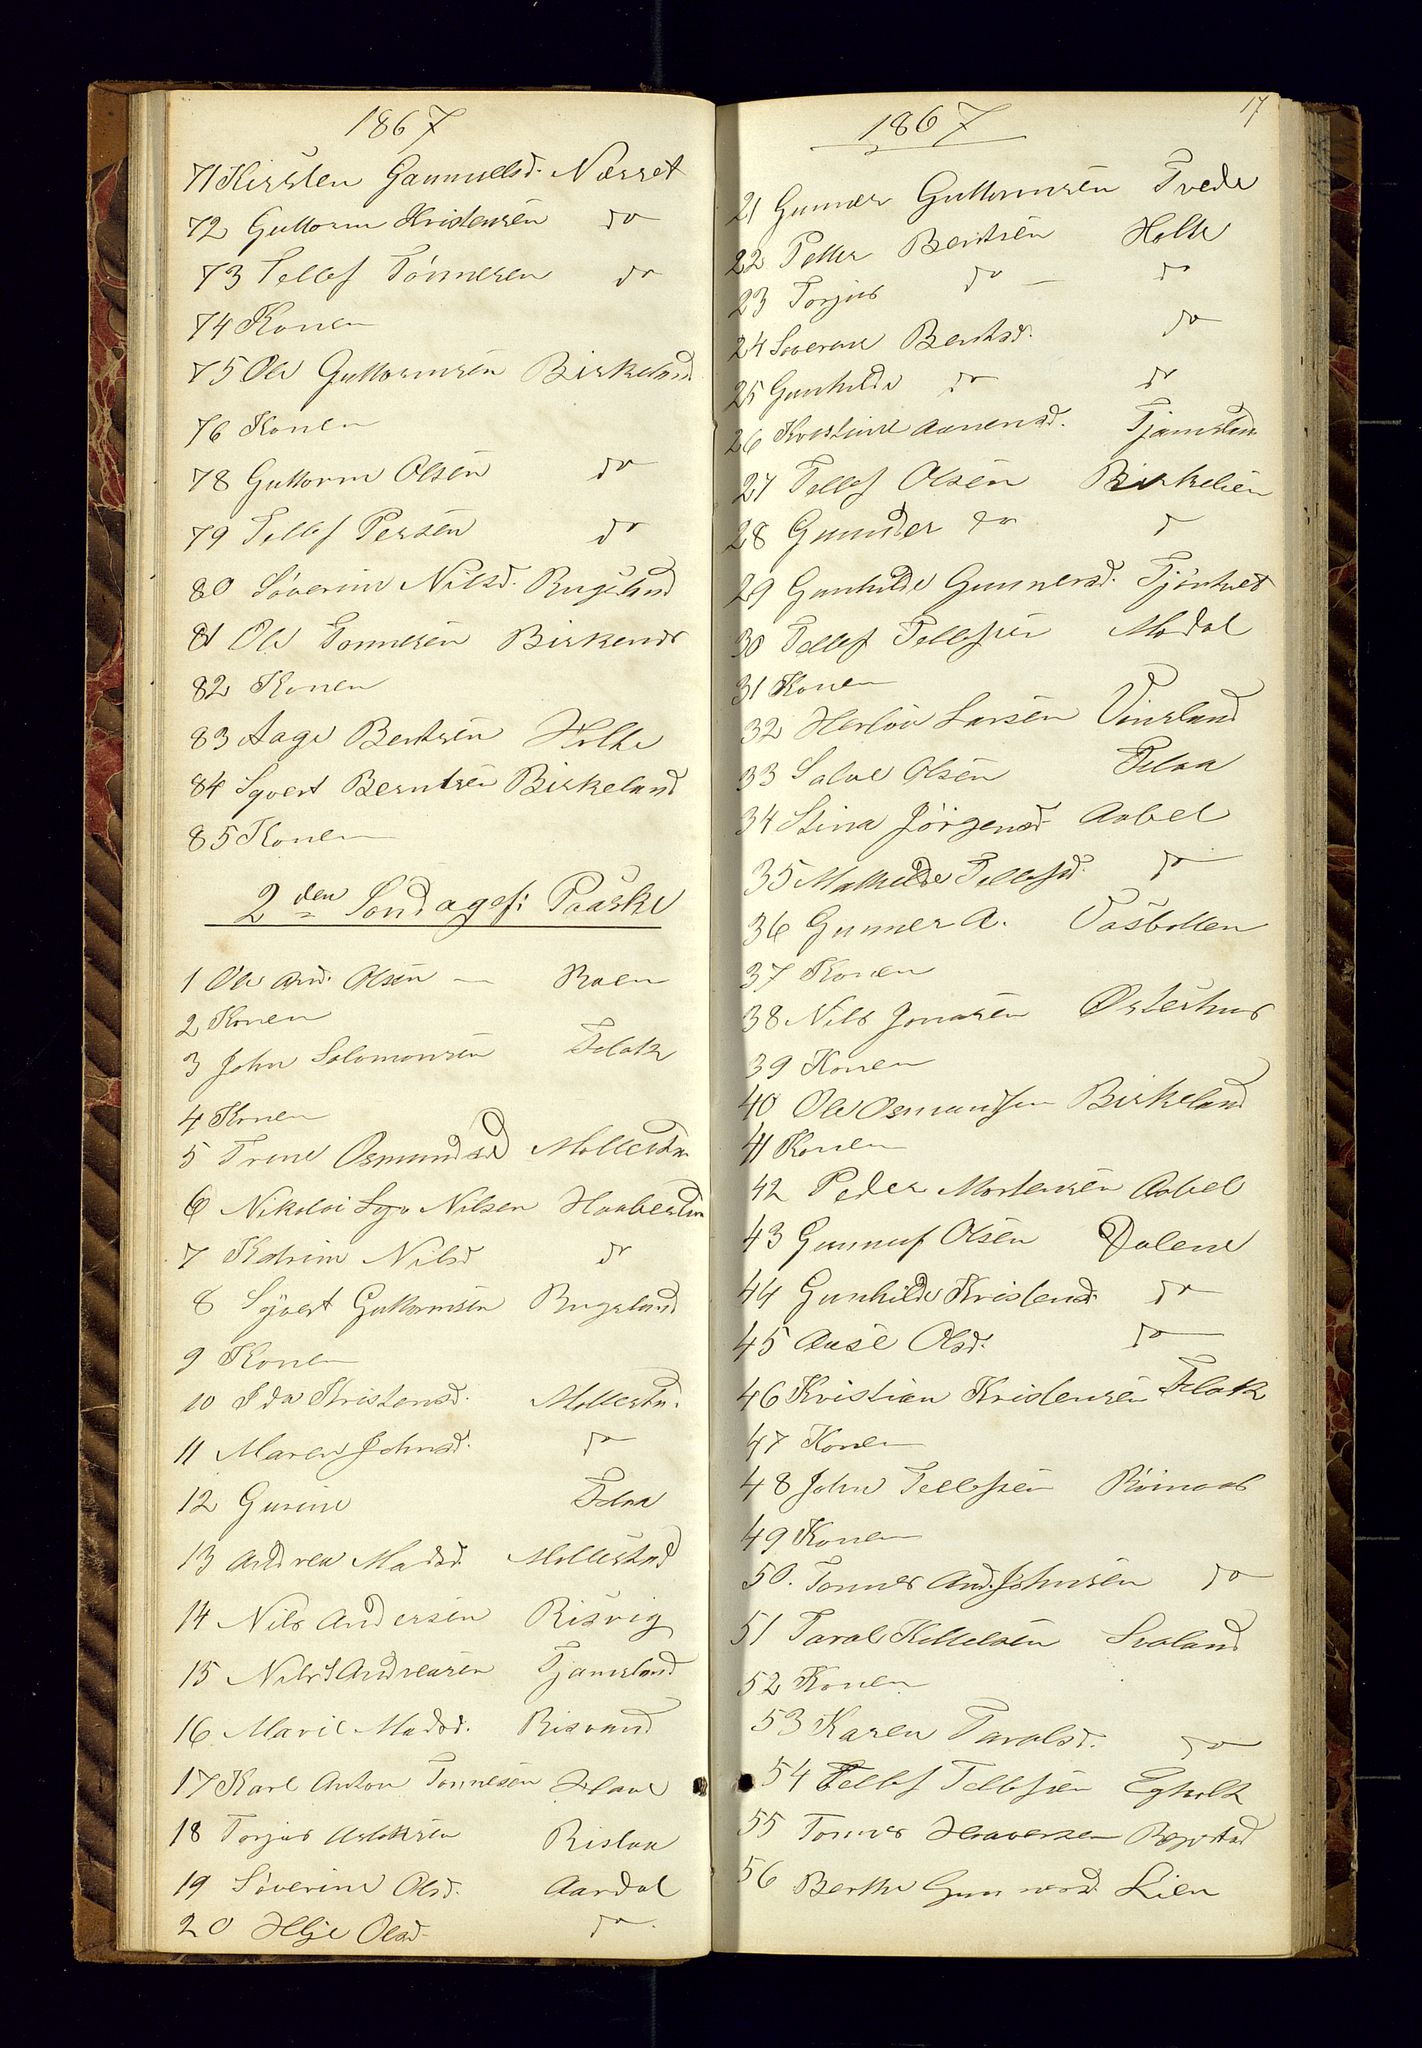 1867
71 Kirsten Gamuelsd. Nærset
72 Guttorm Kristensen do
73 Tellef Tønnesen do
74 Konen
75 Ole Guttormsen Birkeland
76 Konen
78 Guttorm Olsen do
79 Tellef Persen do
80 Søverine Nilsd. Rugsland
81 Ole Tønnesen Birkenes
82 Konen
83 Aage Bentsen Holte
84 Syvert Berntsen Birkeland
85 Konen
2den Søndag ef: Paaske
1 Ole And. Olsen — Roen
2 Konen
3 John Salomonsen Flak
4 Konen
5 Trine Osmundsd Mollestd.
6 Nikolai Nilsen
7 Katrine Nilsd do
8 Syvert Guttormsen Rugsland
9 Konen
10 Ida Kristensd. Mollestd.
11 Maren Johnsd. do
12 Gurine
13 Andrea Madsd. Mollestad
14 Nils Andersen Risvig
15 Nils Andreasen Tjamsland
16 Marie Madsd. Risvand
17 Karl Anton Tønnesen
18 Torjus Aslaksen Rislaa
19 Søverine Olsd. Aardal
20 Helje Olsd. do
17
1867
21 Gunner Guttormsen Tvede
22 Petter Bentsen Holte
23 Torjus do — do
24 Severine Bentsd. do
25 Gunhilde do do
26 Kristine Aanensd. Tjamsland
27 Tellef Olsen Birkelien
28 Gunder do d
29 Gunhilde Gunnersd. Tjønket
30 Tellef Tellefsen Modal
31 Konen
32 Herlov Larsen Vinsland
33 Salve Olsen
34 Stina Jörgensd. Aabel
35 Mathilde Tellefsd. do
36 Gunner A. Vasbotten
37 Konen
38 Nils Jonasen Østerhus
39 Konen
40 Ole Osmundsen Birkeland
41 Konen
42 Peder Mortensen Aabel
43 Gunnuf Olsen Dalene
44 Gunhilde Kristensd. do
45 Anse Olsd. do
46 Kristian Kristensen Flak
47 Konen
48 John Tellefsen Rømaas
49 Konen
50. Tønnes And. Johnsen do
51 Taral Kittelsen Svaland
52 Konen
53 Karen Taralsd. do
54 Tellef Tellefsen Egholt
55 Tønnes Haaversen
56 Berthe Gunnersd. Lien